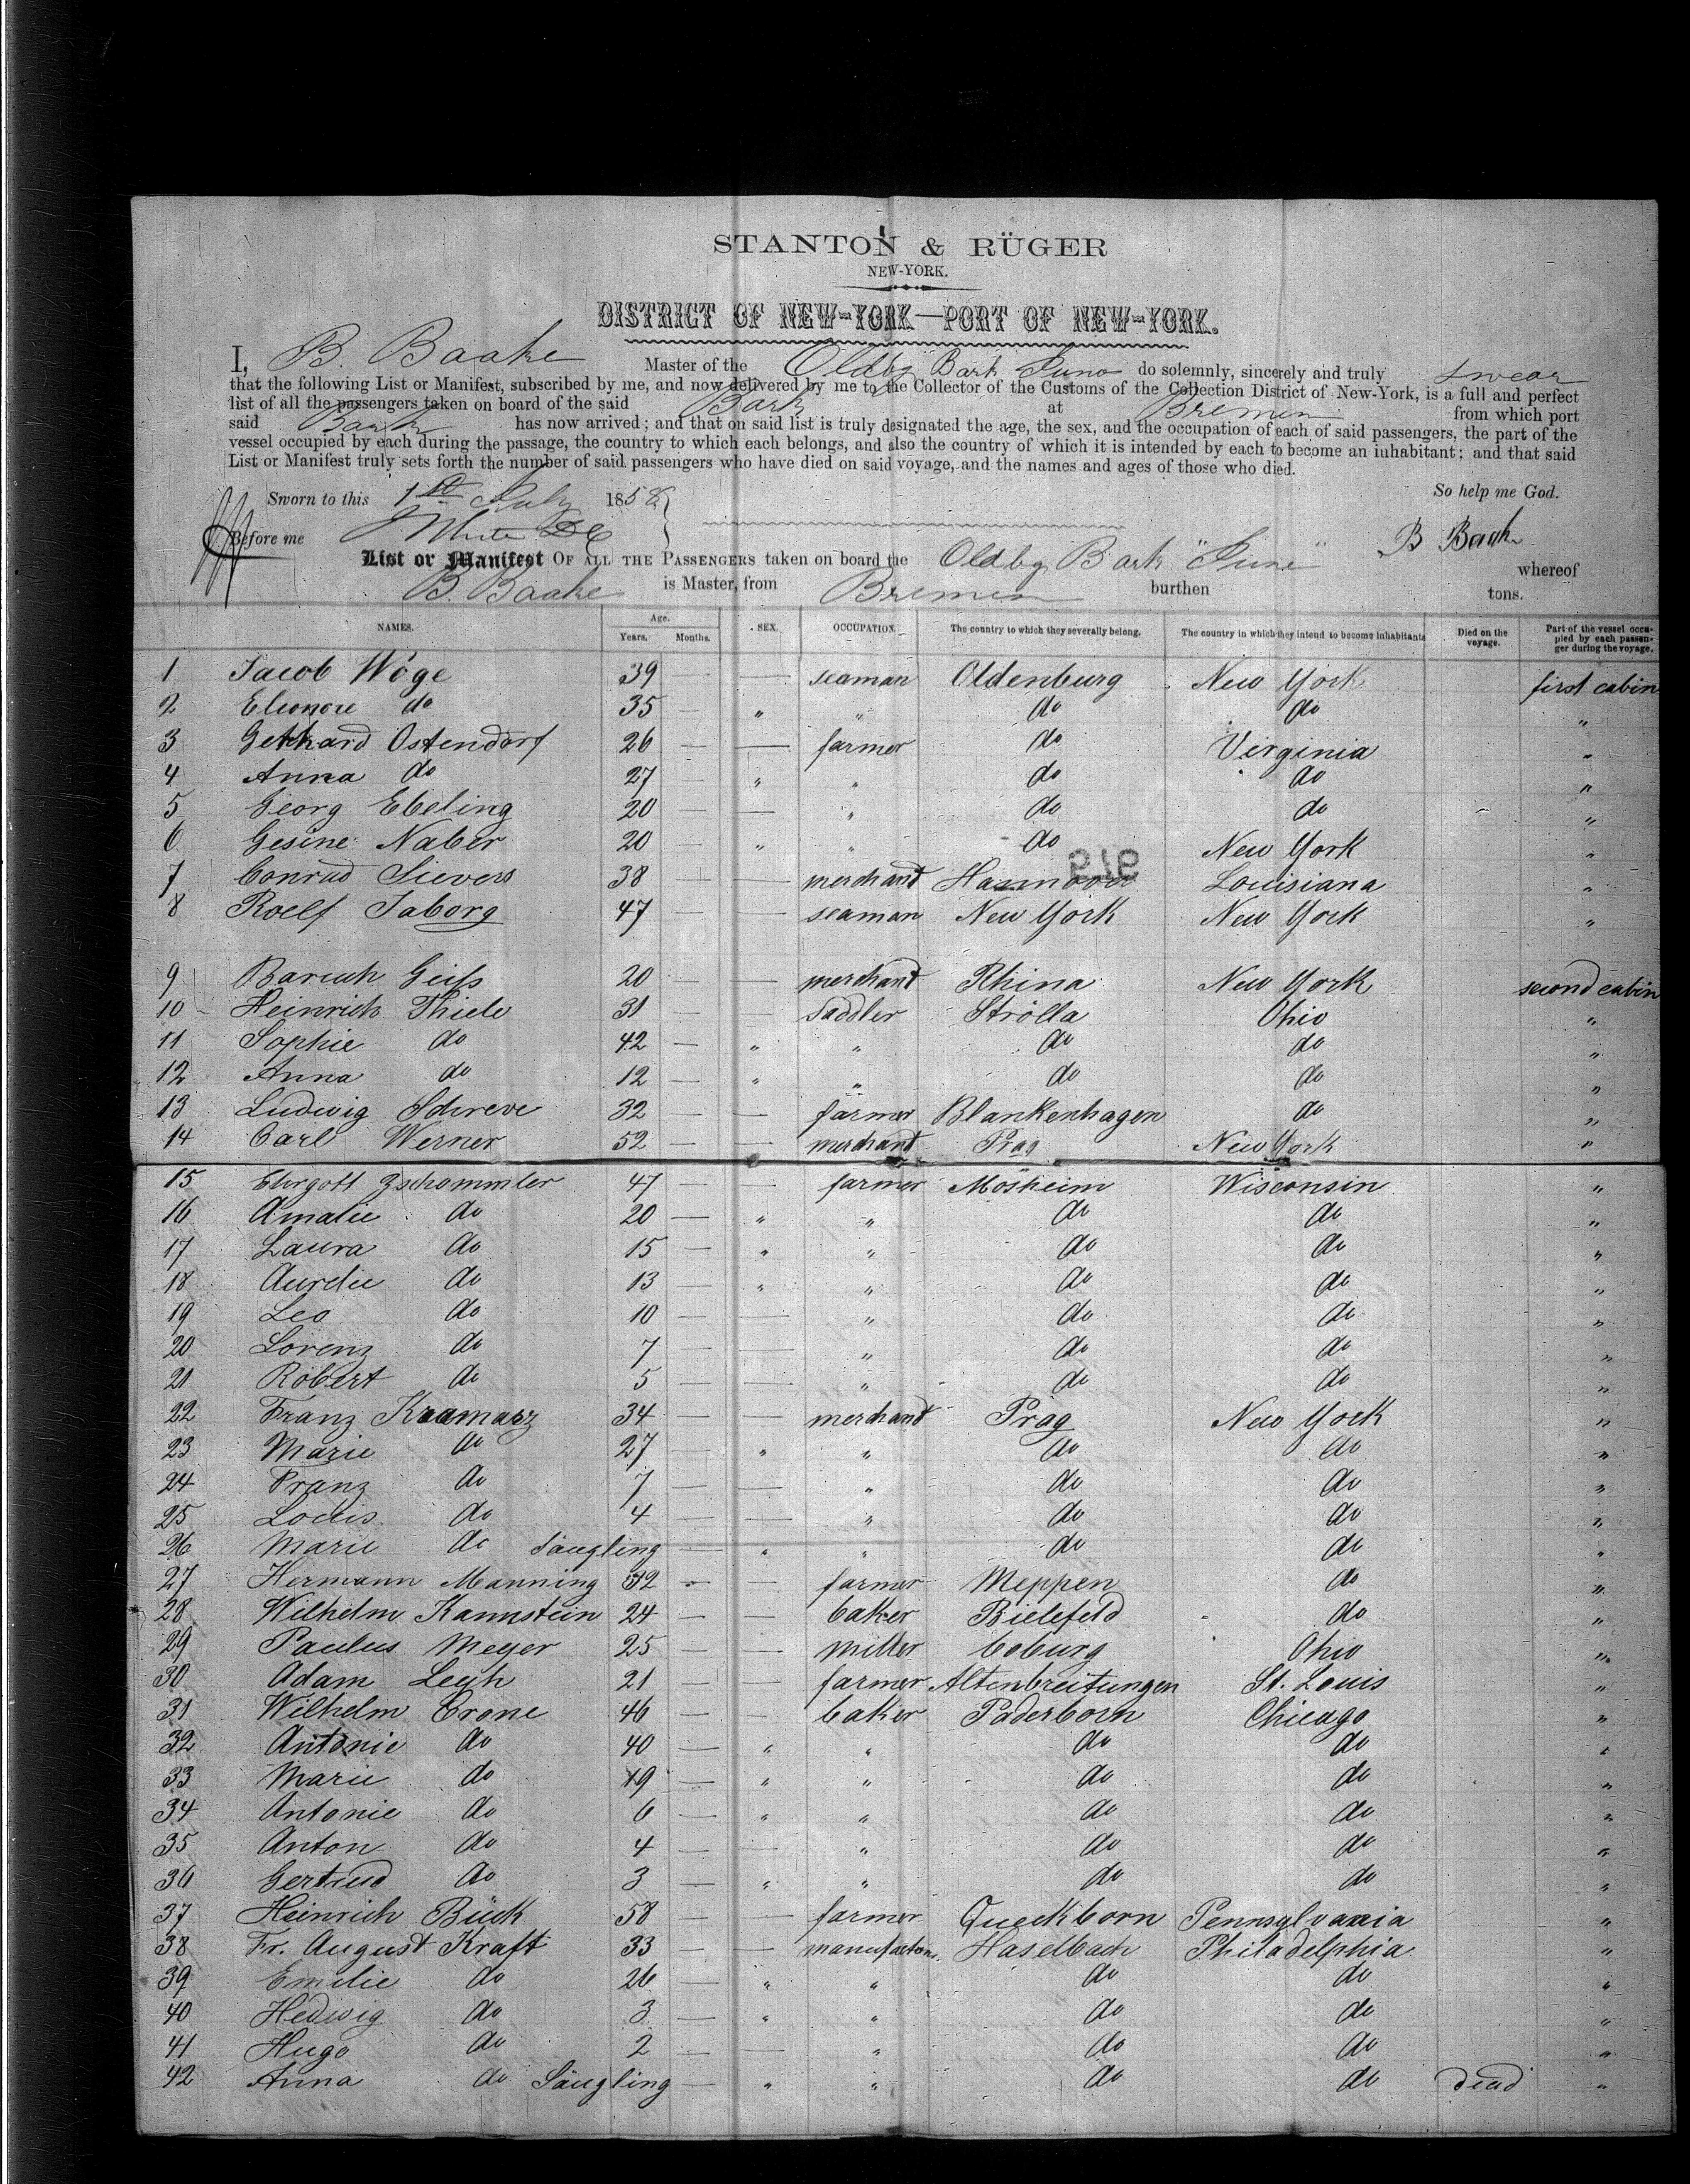 STANTON & RÜGER
NEW-YORK.
DISTRICT OF NEW-YORK—PORT OF NEW-YORK.
I, B. Baake Master of the Oldbg Bark Juno do solemnly, sincerely and truly swear
that the following List or Manifest, subscribed by me, and now delivered by me to the Collector of the Customs of the Collection District of New-York, is a full and perfect
list of all the passengers taken on board of the said Bark at Bremen from which port
said Bark has now arrived; and that on said list is truly designated the age, the sex, and the occupation of each of said passengers, the part of the
vessel occupied by each during the passage, the country to which each belongs, and also the country of which it is intended by each to become an inhabitant; and that said
List or Manifest truly sets forth the number of said passengers who have died on said voyage, and the names and ages of those who died.
So help me God.
Sworn to this 1st July 1858
Before me B Baake
List or Manifest OF ALL THE PASSENGERS taken on board the Oldbg Bark "Juno" whereof
B. Baake is Master, from Bremen burthen tons.
NAMES. Age. Years. Months. SEX. OCCUPATION. The country to which they severally belong. The country in which they intend to become inhabitants Died on the voyage. Part of the vessel occupied by each passenger during the voyage.
1 Jacob Wöge 39 — — seaman Oldenburg New York first cabin
2 Eleonore do 35 — " " do do "
3 Gerhard Ostendorf 26 — — farmer do Virginia "
4 Anna do 27 — " " do do "
5 Georg Ebeling 20 — — " do do "
6 Gesine Naber 20 — " " do New York "
7 Conrad Sievers 38 — — merchant Hannover Louisiana "
8 Roelf Jaborg 47 — — seaman New York New York "
9 Baruch Geiss 20 — — merchant Rhina New York second cabin
10 Heinrich Thiele 31 — — saddler Strölla Ohio "
11 Sophie do 42 — " " do do "
12 Anna do 12 — " " do do "
13 Ludwig Schreve 32 — — farmer Blankenhagen do "
14 Carl Werner 52 — — merchant Prag New York "
15 Ehrgott Zschommler 47 — — farmer Mosheim Wisconsin "
16 Amalie do 20 — " " do do "
17 Laura do 15 — " " do do "
18 Aurelie do 13 — " " do do "
19 Leo do 10 — — " do do "
20 Lorenz do 7 — — " do do "
21 Robert do 5 — — " do do "
22 Franz Kramarz 34 — — merchant Prag New York "
23 Marie do 27 — " " do do "
24 Franz do 7 — — " do do "
25 Louis do 4 — — " do do "
26 Marie do Säugling — " " do do "
27 Hermann Manning 32 — — farmer Meppen do "
28 Wilhelm Kannstein 24 — — baker Bielefeld do "
29 Paulus Meyer 25 — — miller Coburg Ohio "
30 Adam Lesch 21 — — farmer Altenbreitungen St. Louis "
31 Wilhelm Crone 46 — — baker Paderborn Chicago "
32 Antonie do 40 — " " do do "
33 Marie do 19 — " " do do "
34 Antonie do 6 — " " do do "
35 Anton do 4 — — " do do "
36 Gertrud do 3 — " " do do "
37 Heinrich Bück 58 — — farmer Queckborn Pennsylvania "
38 Fr. August Kraft 33 — — Haselbach Philadelphia "
39 Emilie do 26 — " " do do "
40 Hedwig do 3 — " " do do "
41 Hugo do 2 — — " do do "
42 Anna do Säugling — " " do do dead "